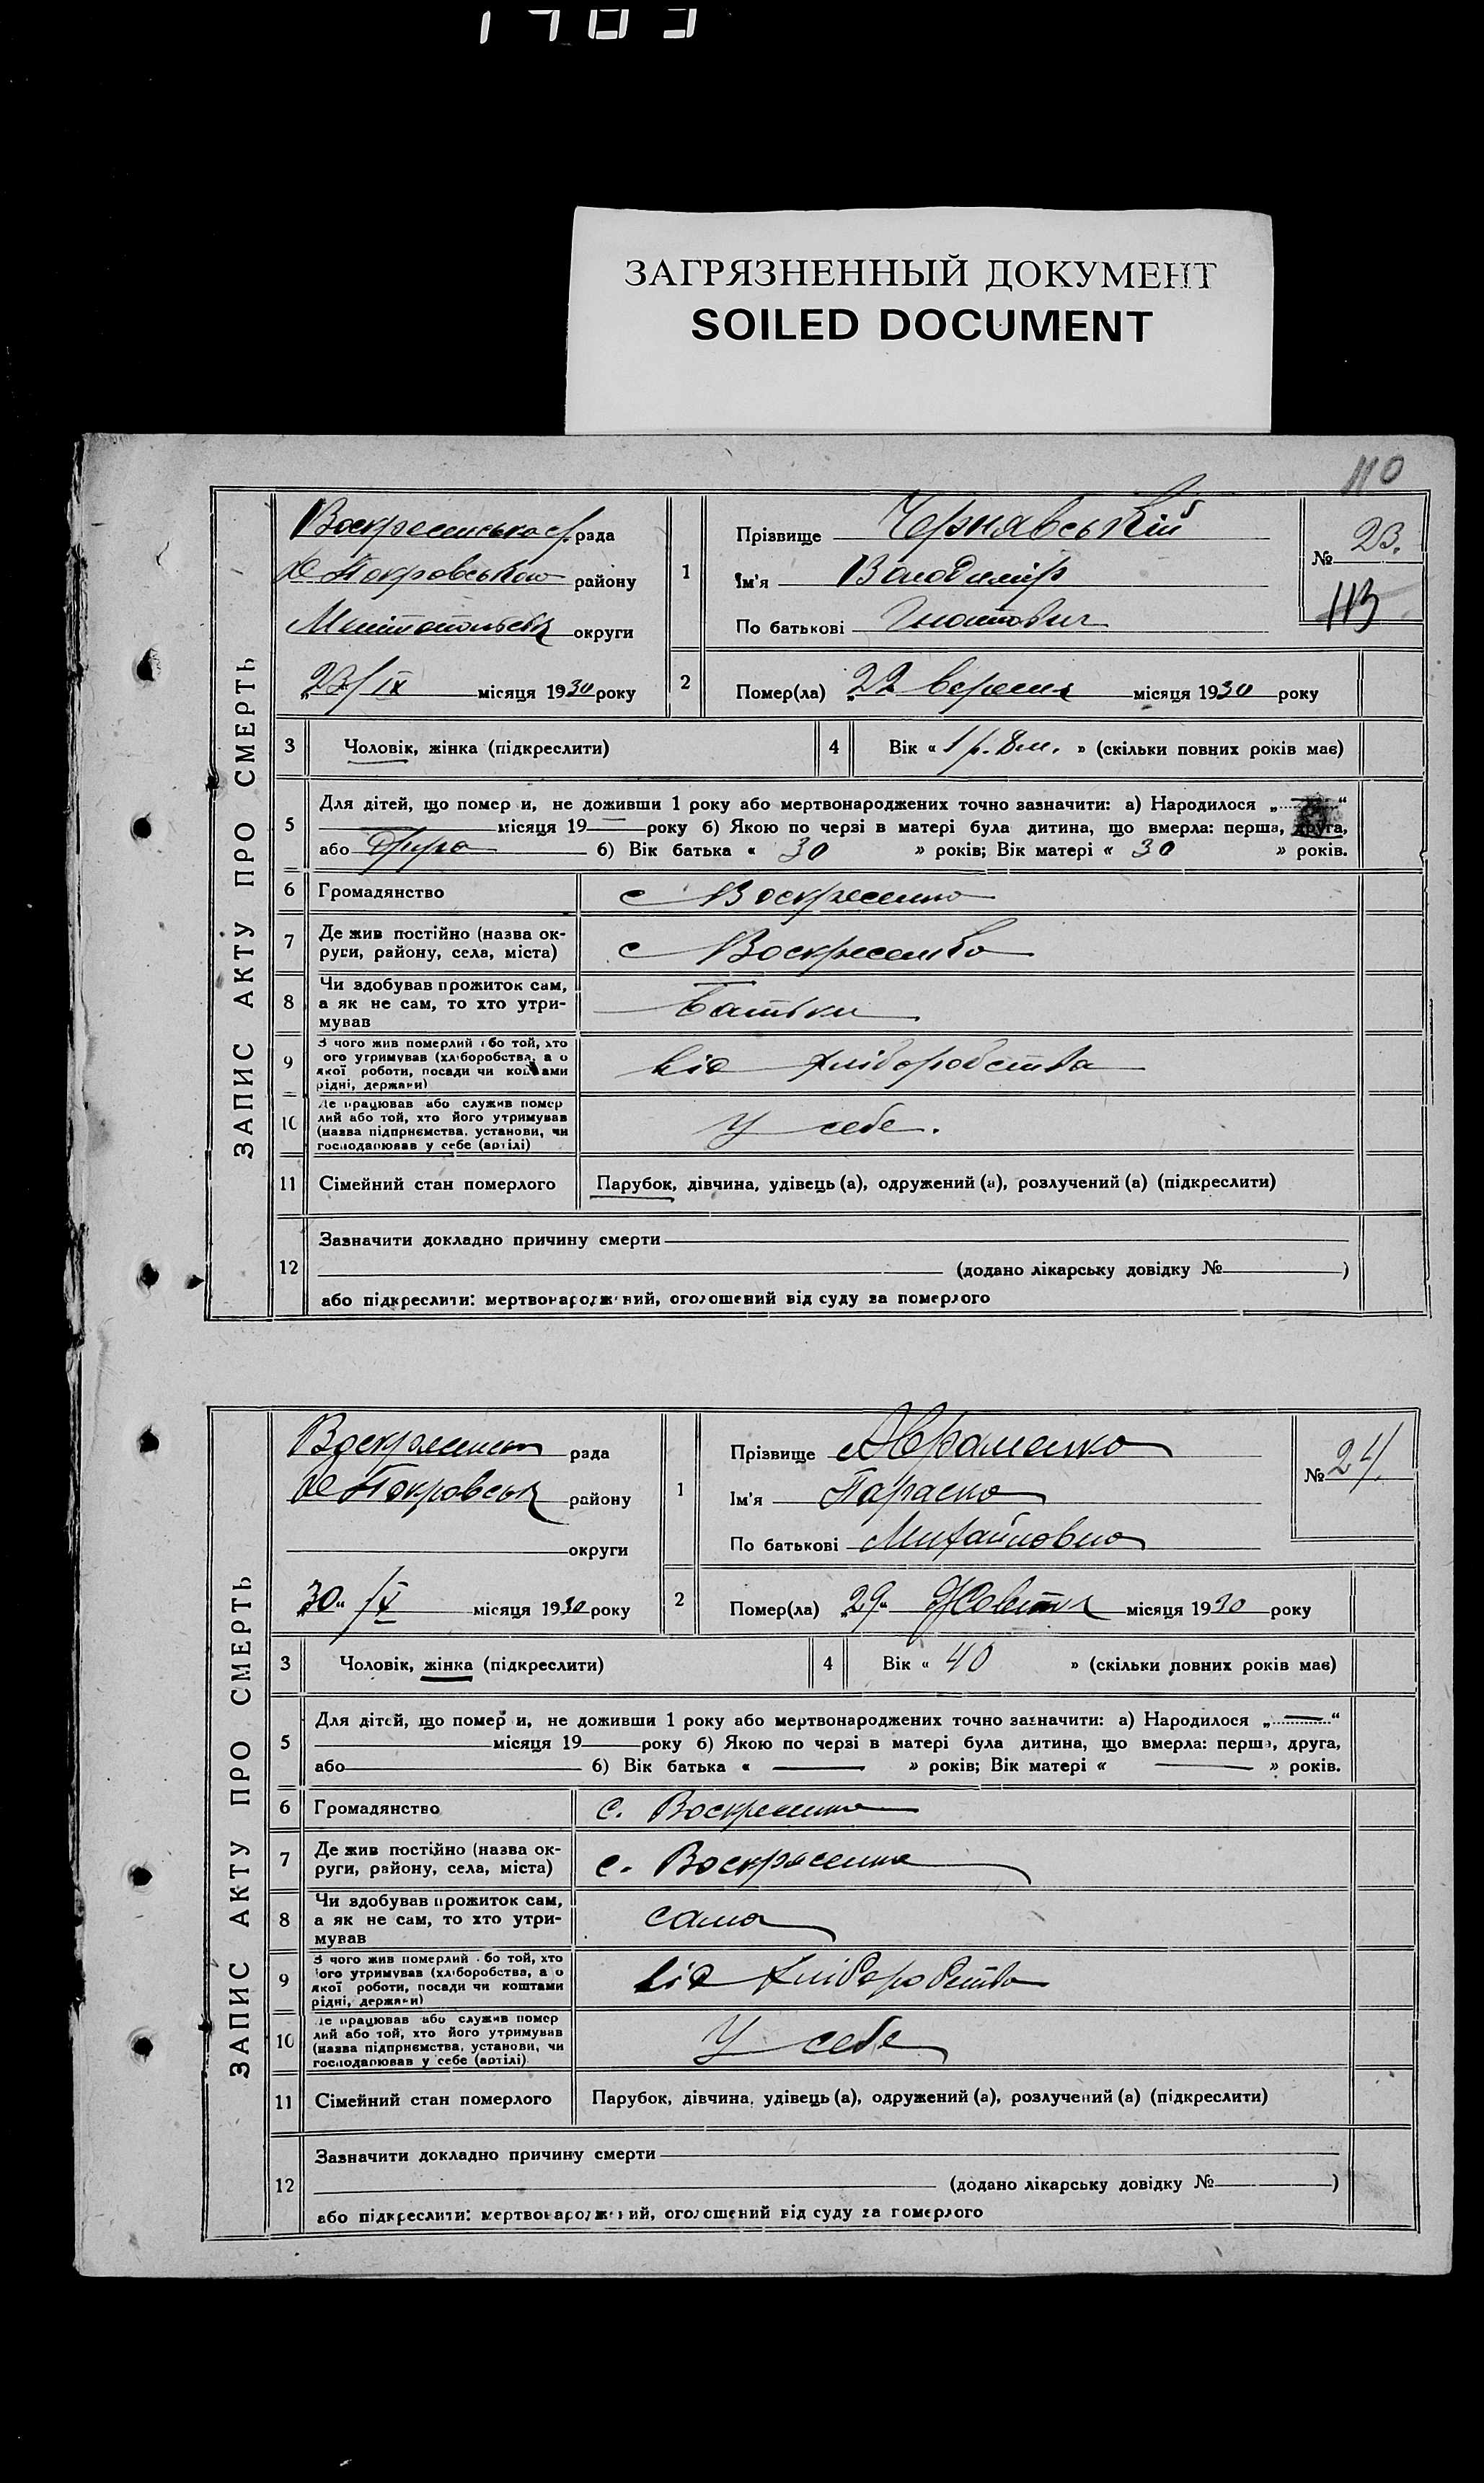 1703
ЗАГРЯЗНЕННЫЙ ДОКУМЕНТ
SOILED DOCUMENT
110
ЗАПИС АКТУ ПРО СМЕРТЬ
Воскресенська с/рада
Н Покровського району
Мелітопольськ округи
„23/IX місяця 1930 року
1
Прізвище Чернявський
Ім'я Володимір
По батькові Гнатович
№ 23.
113
2
Помер(ла) „22 вересня місяця 1930 року
3
Чоловік, жінка (підкреслити)
4
Вік « 1 р. 8 м. » (скільки повних років має)
5
Для дітей, що помер и, не доживши 1 року або мертвонароджених точно зазначити: а) Народилося „ “
місяця 19 року б) Якою по черзі в матері була дитина, що вмерла: перша, друга,
або друга б) Вік батька « 30 » років; Вік матері « 30 » років.
6
Громадянство
с Воскресенка
7
Де жив постійно (назва ок-
руги, району, села, міста)
с Воскресенка
8
Чи здобував прожиток сам,
а як не сам, то хто утри-
мував
Батьки
9
З чого жив померлий або той, хто
ого утримував (хліборобства, а о
якої роботи, посади чи коштами
рідні, держави)
від хліборобства
10
Де працював або служив помер
лий або той, хто його утримував
(назва підприємства, установи, чи
господарював у себе (артілі)
У себе.
11
Сімейний стан померлого
Парубок, дівчина, удівець (а), одружений (а), розлучений (а) (підкреслити)
12
Зазначити докладно причину смерти
(додано лікарську довідку № )
або підкреслити: мертвонароджений, оголошений від суду за померлого
ЗАПИС АКТУ ПРО СМЕРТЬ
Воскресенськ рада
Н Покровськ району
округи
„30“/X місяця 1930 року
1
Прізвище Авраменко
Ім'я Параска
По батькові Михайловна
№ 24.
2
Помер(ла) „29“ Жовтня місяця 1930 року
3
Чоловік, жінка (підкреслити)
4
Вік « 40 » (скільки повних років має)
5
Для дітей, що помер и, не доживши 1 року або мертвонароджених точно зазначити: а) Народилося „ “
місяця 19 року б) Якою по черзі в матері була дитина, що вмерла: перша, друга,
або б) Вік батька « » років; Вік матері « » років.
6
Громадянство
с. Воскресенка
7
Де жив постійно (назва ок-
руги, району, села, міста)
с. Воскресенка
8
Чи здобував прожиток сам,
а як не сам, то хто утри-
мував
сама
9
З чого жив померлий або той, хто
його утримував (хліборобства, а о
якої роботи, посади чи коштами
рідні, держави)
від хліборобства
10
Де працював або служив помер
лий або той, хто його утримував
(назва підприємства, установи, чи
господарював у себе (артілі)
У себе
11
Сімейний стан померлого
Парубок, дівчина, удівець (а), одружений (а), розлучений (а) (підкреслити)
12
Зазначити докладно причину смерти
(додано лікарську довідку № )
або підкреслити: мертвонароджений, оголошений від суду за померлого